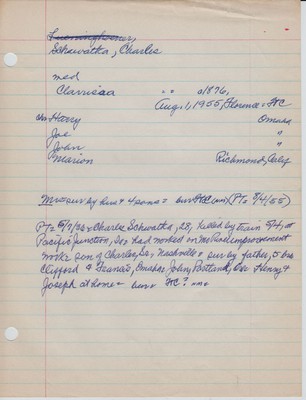 Schwatka, Charles
med
Clarrissa " " a/876,
Aug. 1, 1955, Florence = FC
ch= Harry Omaha
Joe "
John "
Marion Richmond, Calif
Mrs= sur by hus & 4 sons = bur= FC (PT= 8/4/55)
Charles Schwatka, 28, killed by train 5/4, at
Pacific Junction, Ia= had worked on Mo River improvement
work= son of Charles, Sr, Nashville = sur by father, 5 bro
Clifford & Francis, Omaha= John, Portland, Ore= Henry &
Joseph at home = bur= FC?